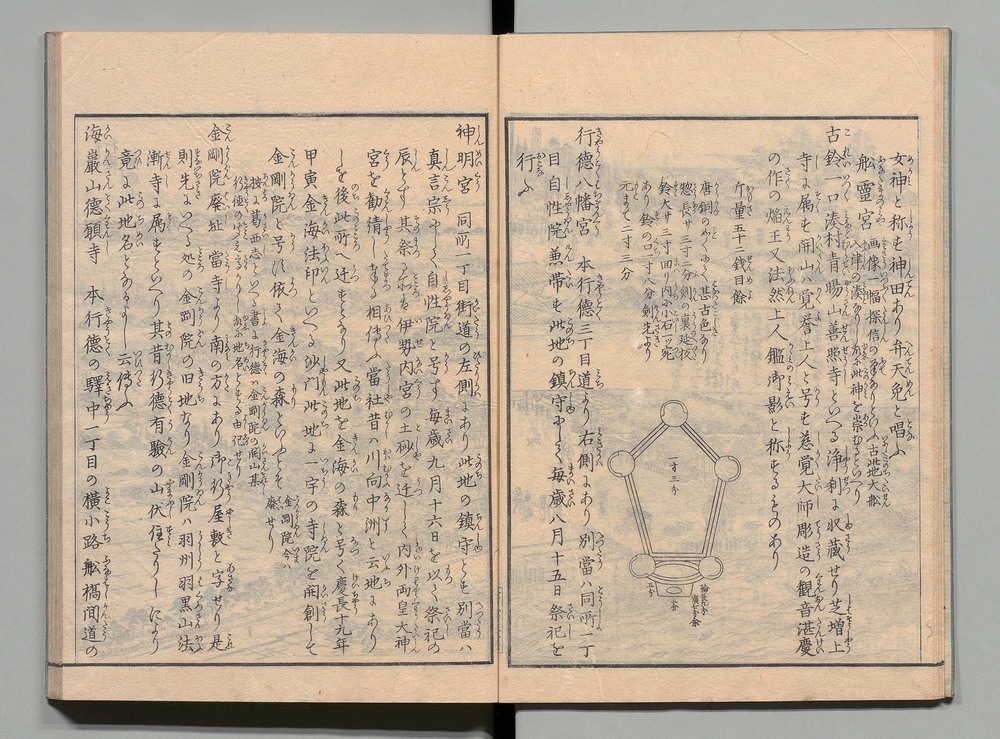 女神と称も神田あり弁天免と唱ふ
舩靈宮 画像一幅探信の筆ありといふ古此地大舩
入津の湊あり故此神を崇むるとのへり
古鈴一口湊村青暘山善照寺といへる浄刹に収蔵せり芝増上
寺に属も開山ハ覚誉上人と号も慈覚大師彫造の観音湛慶
の作の焔王又法然上人鑑御影と称もるものあり
斤量五十二銭目餘
唐銅のめくにして甚古色あり
惣長サ三寸三分剣の裏延板
鈴大サ三寸回り内に小石二ツ宛
あり鈴の一寸八分剣先より
元まて二寸三分
一寸三分
行徳八幡宮 本行徳三丁目道より右側にあり別當ハ同所一丁
目自性院兼帯も此地の鎮守にして毎歳八月十五日祭祀を
行ふ
神明宮 同所一丁目街道の左側にあり此地の鎮守とも別當ハ
真言宗にして自性院と号す毎歳九月十六日を以て祭祀の
辰とす其祭る神も伊勢内宮の土砂を迁して内外両皇大神
宮を勧猜し奉る相傳ふ當社昔ハ川向中洲と云地にあり
しを後此所へ迁もとあり又此地を金海の森と号く慶長十九年
甲寅金海法印といへる沙門此地に一宇の寺院を開創して
金剛院と号に依て金海の森といふとそ 金剛院今ハ
廃せり
按に葛西志といへる書に行徳ハ金剛院の開山某
行徳のきこえありしあふ地名とする由記せり
金剛院廃址 當寺より南の方にあり御行屋敷と字せり是
則先にいへる処の金剛院の旧地なり金剛院ハ羽州羽黒山法
漸寺に属もといへり其昔行徳有驗の山伏住たりしにより
竟に此地名とあるよし云傳ふ
海巌山徳願寺 本行徳の驛中一丁目の横小路舩橋間道の